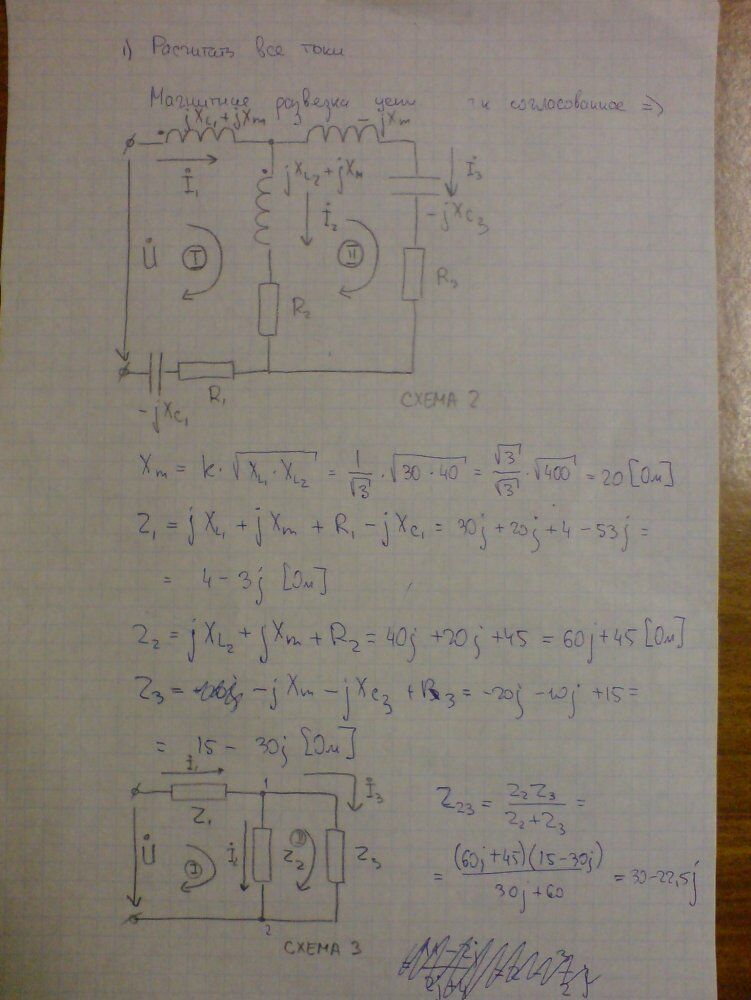 1) Расчитать все токи.
Магнитная развезка цепи тк согласованное =>
jX_L1 + jX_m
- jX_m
İ₁
jX_L2 + jX_m
İ₂
İ₃
-jX_C3
U̇
I
II
R₂
R₃
-jX_C1
R₁
СХЕМА 2
X_m = k · √(X_L1 · X_L2) = 1/√3 · √(30 · 40) = √3/√3 · √400 = 20 [Ом]
Z₁ = jX_L1 + jX_m + R₁ - jX_C1 = 30j + 20j + 4 - 53j =
= 4 - 3j [Ом]
Z₂ = jX_L2 + jX_m + R₂ = 40j + 20j + 45 = 60j + 45 [Ом]
Z₃ = -jX_m - jX_C3 + R₃ = -20j - 10j + 15 =
= 15 - 30j [Ом]
İ₁
1
İ₃
Z₁
U̇
I
İ₂
Z₂
II
Z₃
2
СХЕМА 3
Z₂₃ = Z₂Z₃/(Z₂+Z₃) =
= (60j+45)(15-30j)/(30j+60) = 30-22,5j